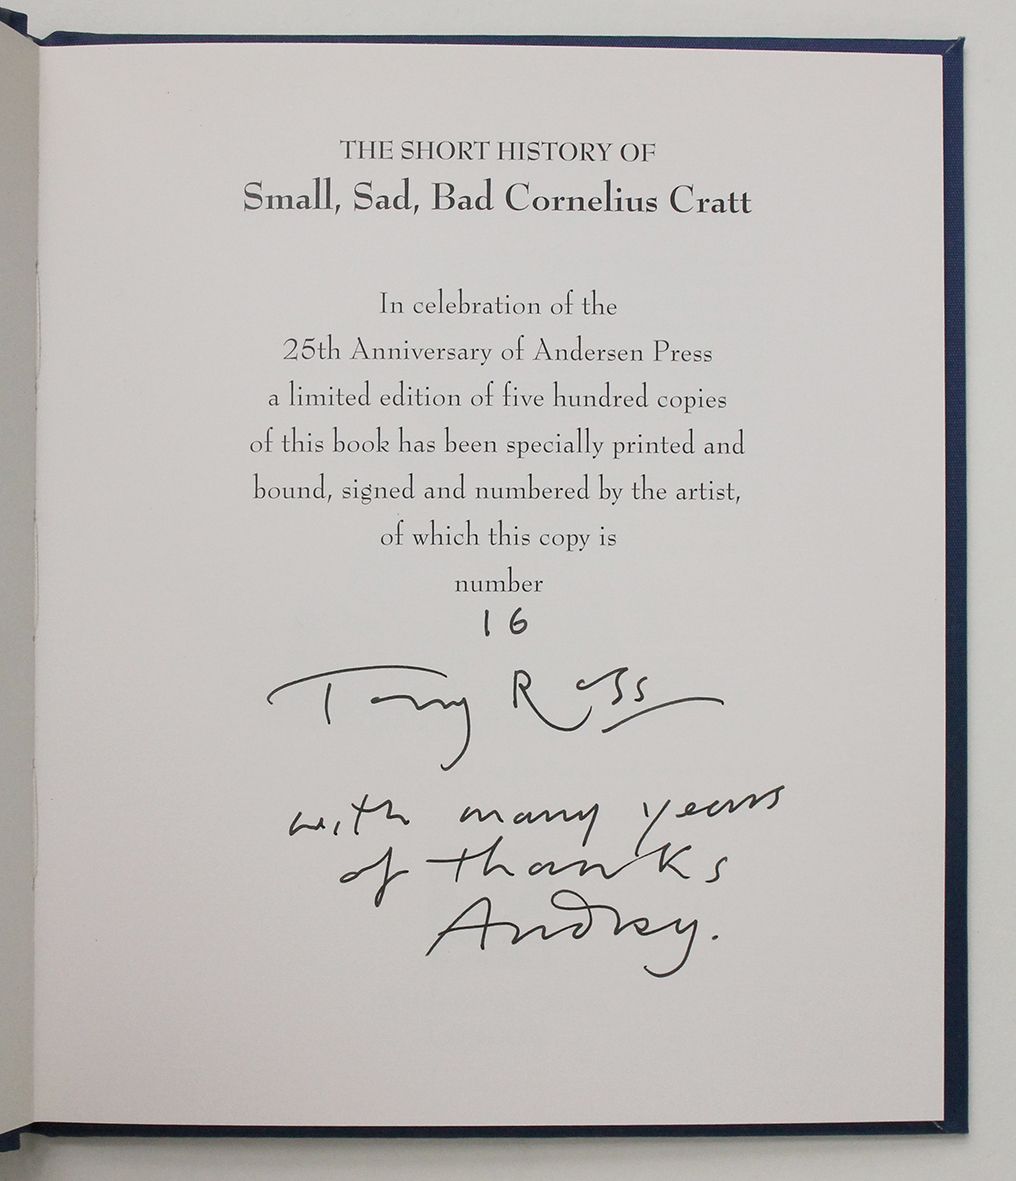 THE SHORT HISTORY OF
Small, Sad, Bad Cornelius Cratt
In celebration of the
25th Anniversary of Andersen Press
a limited edition of five hundred copies
of this book has been specially printed and
bound, signed and numbered by the artist,
of which this copy is
number
16
Tony Ross
with many years
of thanks